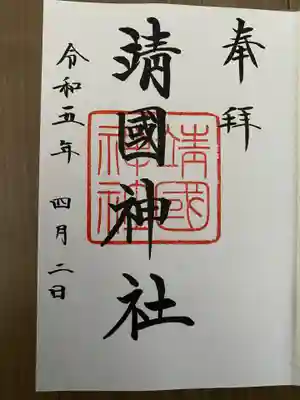 奉拝
靖國神社
靖國神社
令和五年 四月二日